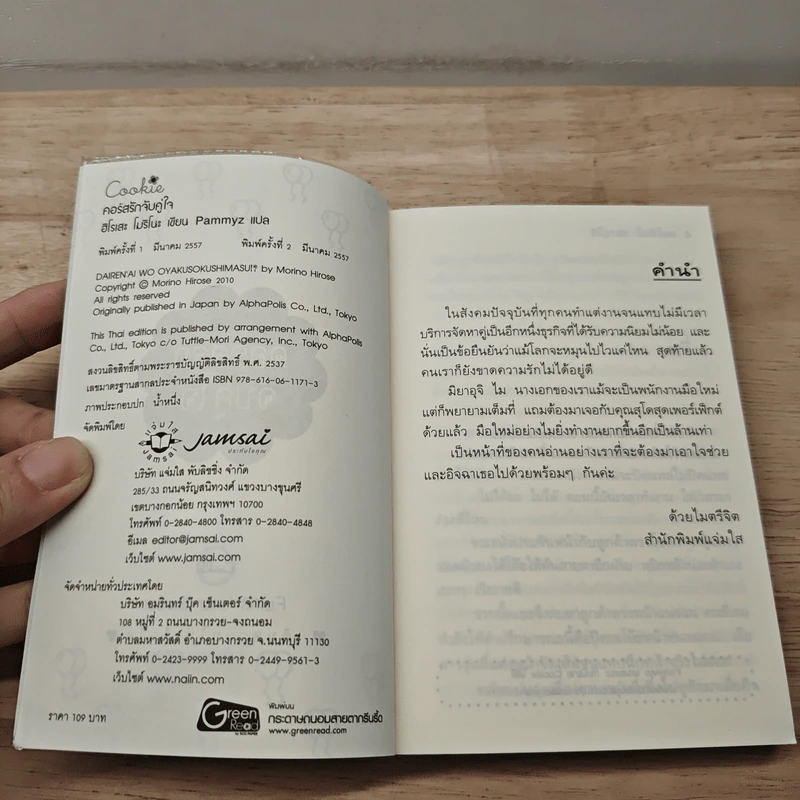 Cookie
คอร์สรักจับคู่ใจ
ฮิโรเสะ โมริโนะ เขียน Pammyz แปล
พิมพ์ครั้งที่ 1 มีนาคม 2557 พิมพ์ครั้งที่ 2 มีนาคม 2557
DAIREN'AI WO OYAKUSOKUSHIMASU!? by Morino Hirose
Copyright © Morino Hirose 2010
All rights reserved
Originally published in Japan by AlphaPolis Co., Ltd., Tokyo
This Thai edition is published by arrangement with AlphaPolis
Co., Ltd., Tokyo c/o Tuttle-Mori Agency, Inc., Tokyo
สงวนลิขสิทธิ์ตามพระราชบัญญัติลิขสิทธิ์ พ.ศ. 2537
เลขมาตรฐานสากลประจำหนังสือ ISBN 978-616-06-1171-3
ภาพประกอบปก น้ำหนึ่ง
จัดพิมพ์โดย
แจ่มใส
JAMSAI
Jamsai
ประทับใจคุณ
บริษัท แจ่มใส พับลิชชิ่ง จำกัด
285/33 ถนนจรัญสนิทวงศ์ แขวงบางขุนศรี
เขตบางกอกน้อย กรุงเทพฯ 10700
โทรศัพท์ 0-2840-4800 โทรสาร 0-2840-4848
อีเมล editor@jamsai.com
เว็บไซต์ www.jamsai.com
จัดจำหน่ายทั่วประเทศโดย
บริษัท อมรินทร์ บุ๊ค เซ็นเตอร์ จำกัด
108 หมู่ที่ 2 ถนนบางกรวย-จงถนอม
ตำบลมหาสวัสดิ์ อำเภอบางกรวย จ.นนทบุรี 11130
โทรศัพท์ 0-2423-9999 โทรสาร 0-2449-9561-3
เว็บไซต์ www.naiin.com
ราคา 109 บาท
Green
Read
by SCG PAPER
พิมพ์บน
กระดาษถนอมสายตากรีนรี้ด
www.greenread.com
คำนำ
ในสังคมปัจจุบันที่ทุกคนทำแต่งานจนแทบไม่มีเวลา
บริการจัดหาคู่เป็นอีกหนึ่งธุรกิจที่ได้รับความนิยมไม่น้อย และ
นั่นเป็นข้อยืนยันว่าแม้โลกจะหมุนไปไวแค่ไหน สุดท้ายแล้ว
คนเราก็ยังขาดความรักไม่ได้อยู่ดี
มิยาอุจิ ไม นางเอกของเราแม้จะเป็นพนักงานมือใหม่
แต่ก็พยายามเต็มที่ แถมต้องมาเจอกับคุณสุโดสุดเพอร์เฟ็กต์
ด้วยแล้ว มือใหม่อย่างไมยิ่งทำงานยากขึ้นอีกเป็นล้านเท่า
เป็นหน้าที่ของคนอ่านอย่างเราที่จะต้องมาเอาใจช่วย
และอิจฉาเธอไปด้วยพร้อมๆ กันค่ะ
ด้วยไมตรีจิต
สำนักพิมพ์แจ่มใส